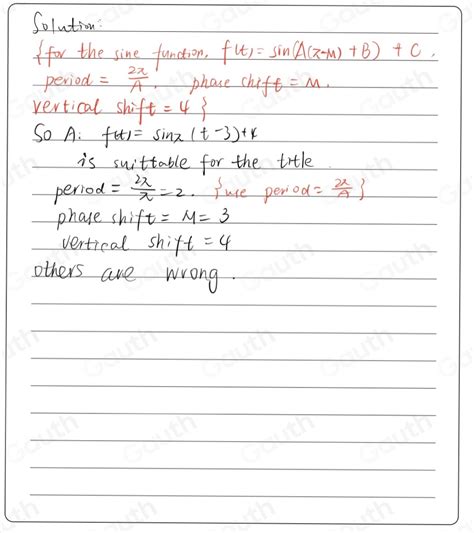 Solution:
{for the sine function, f(t) = sin(A(x-M) + B) + C,
period = 2π/A, phase chift = M.
vertical shift = 4 }
So A: f(t) = sinπ (t-3)+4
is suittable for the title.
period = 2π/π = 2. {use period = 2π/A }
phase shift = M = 3
vertical shift = 4
others are wrong.